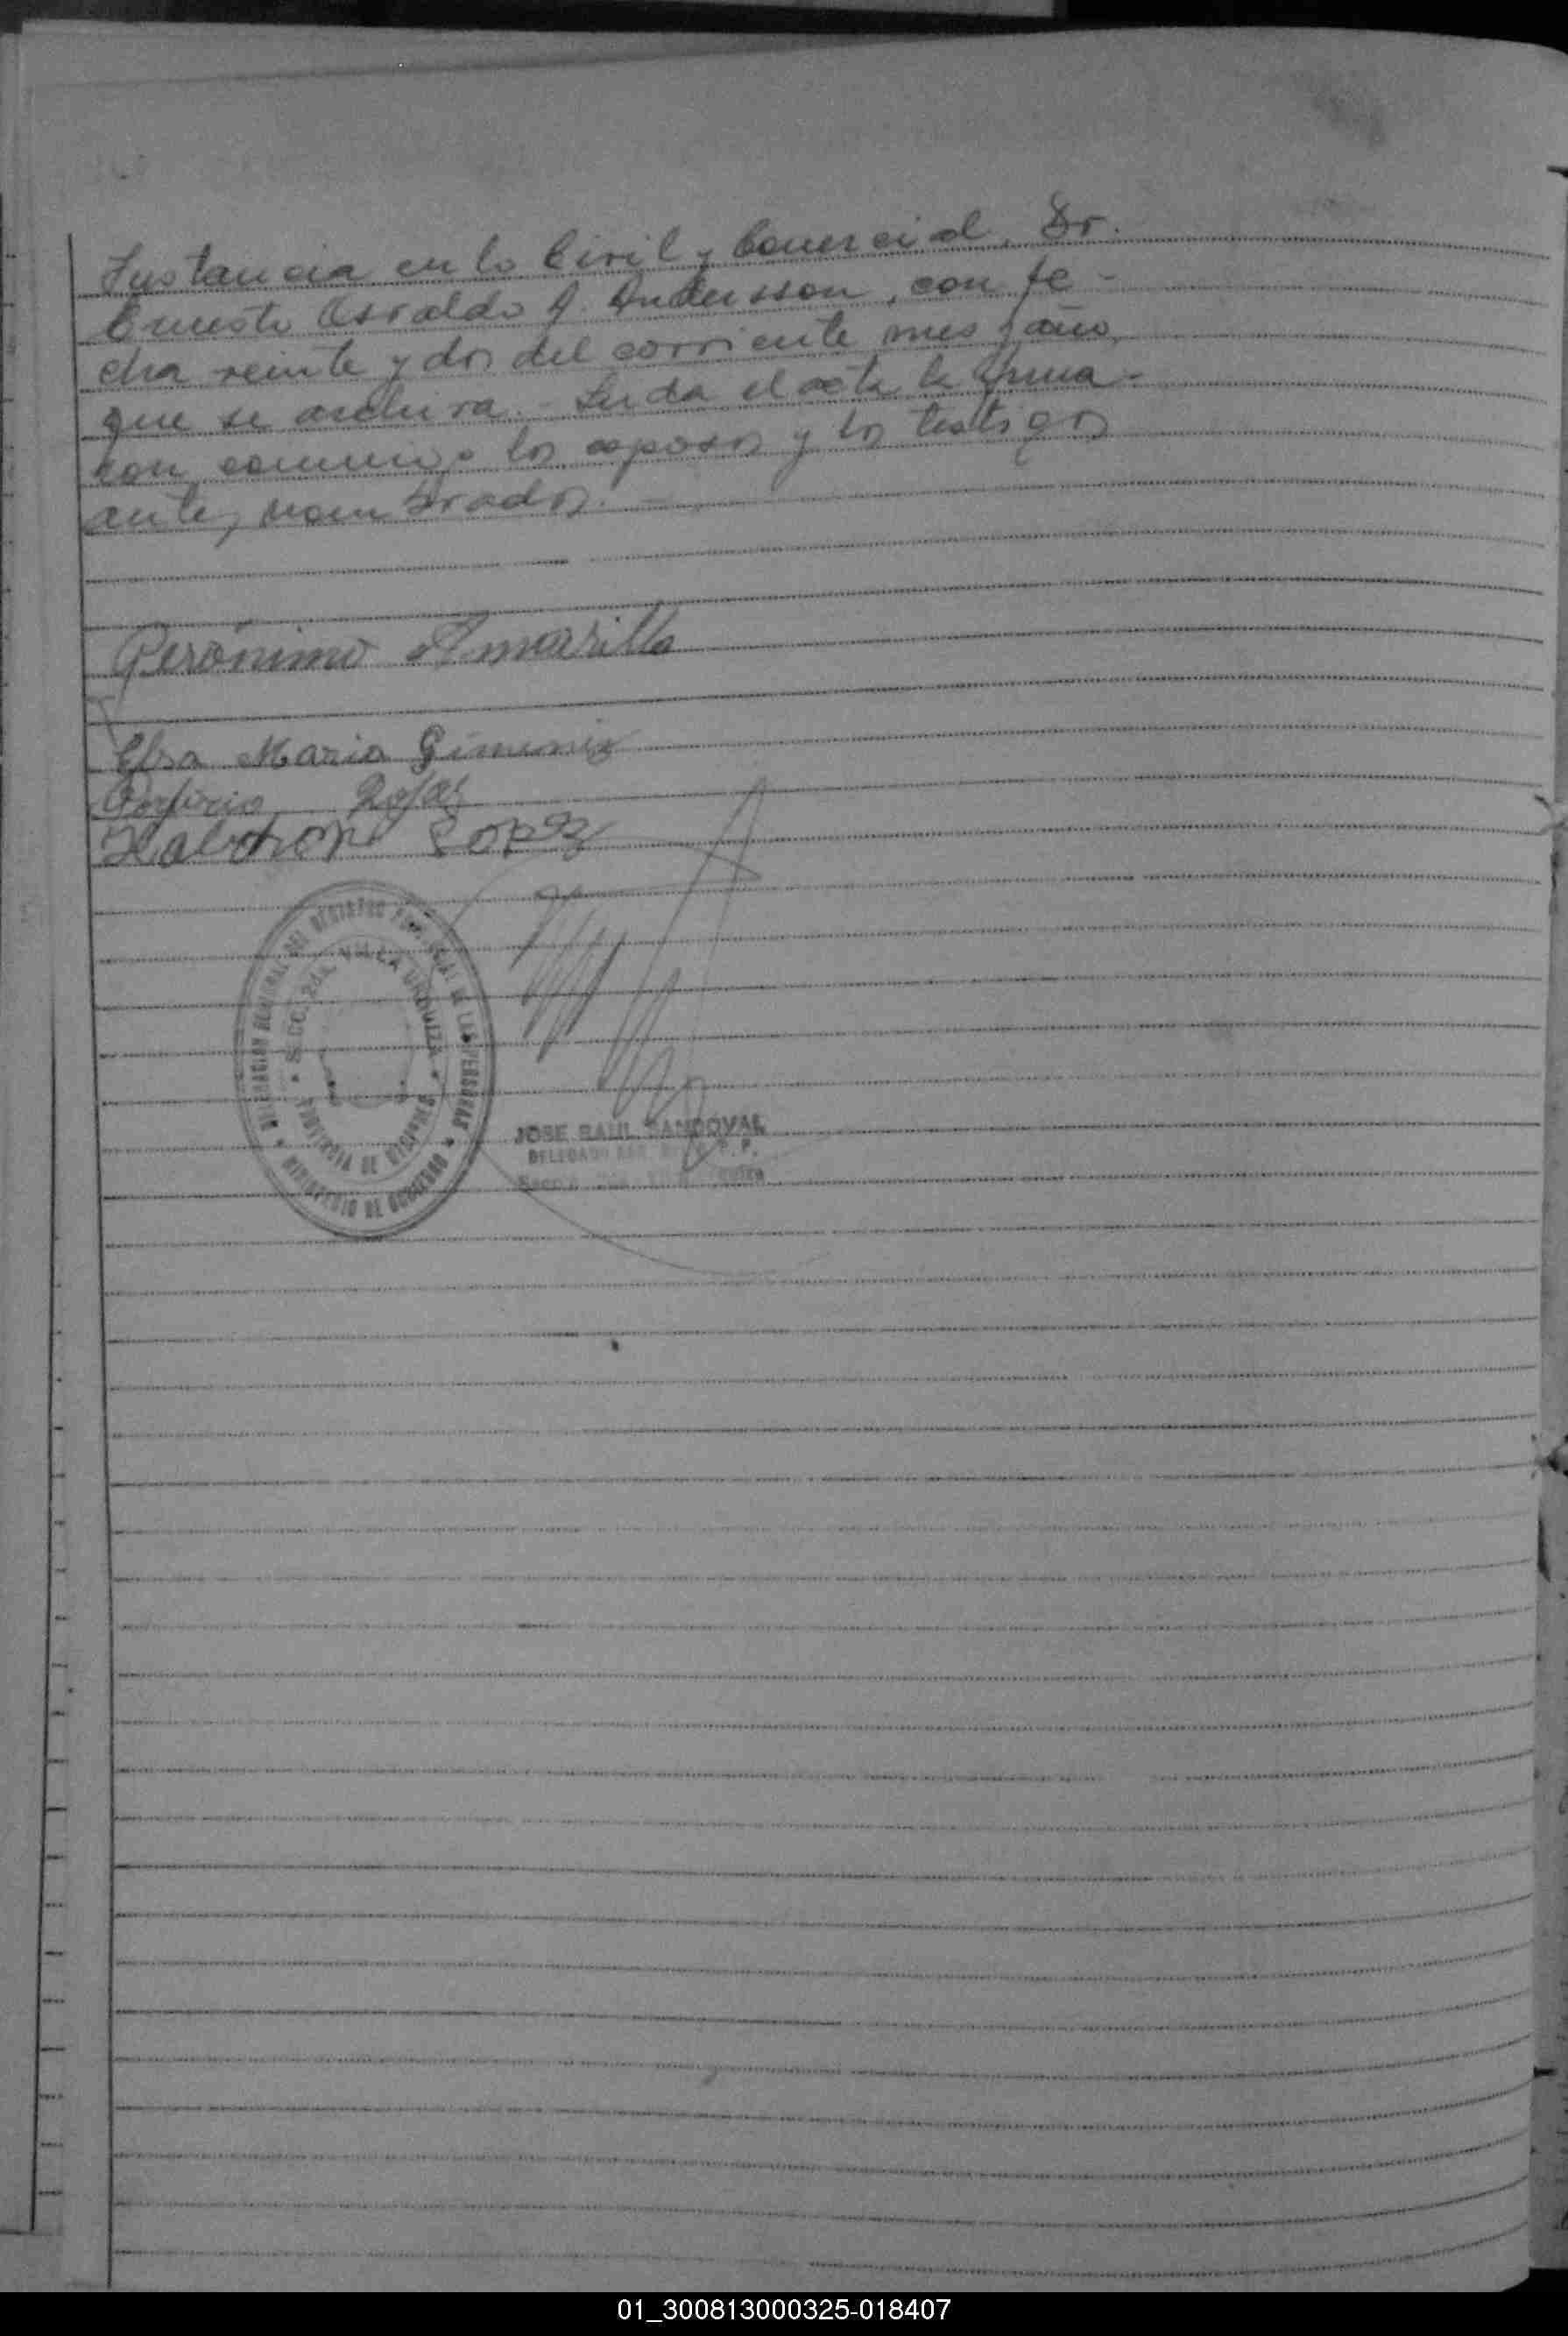 Instancia en lo Civil y Comercial, Dr.
Ernesto Osvaldo A. Andersson, con fe-
cha veinte y dos del corriente mes y año,
que se archiva.- Leida el acta la firma-
con conmigo los esposos y los testigos
antes nombrados.-
Gerónimo Amarilla
Elsa Maria Gimenez
Porfirio Rojas
Lopez
DEL REGISTRO PROVINCIAL DE LAS PERSONAS
SECC. 2da. VILLA URQUIZA
PROVINCIA DE MISIONES
MINISTERIO DE GOBIERNO
JOSE RAUL SANDOVAL
DELEGADO
01_300813000325-018407